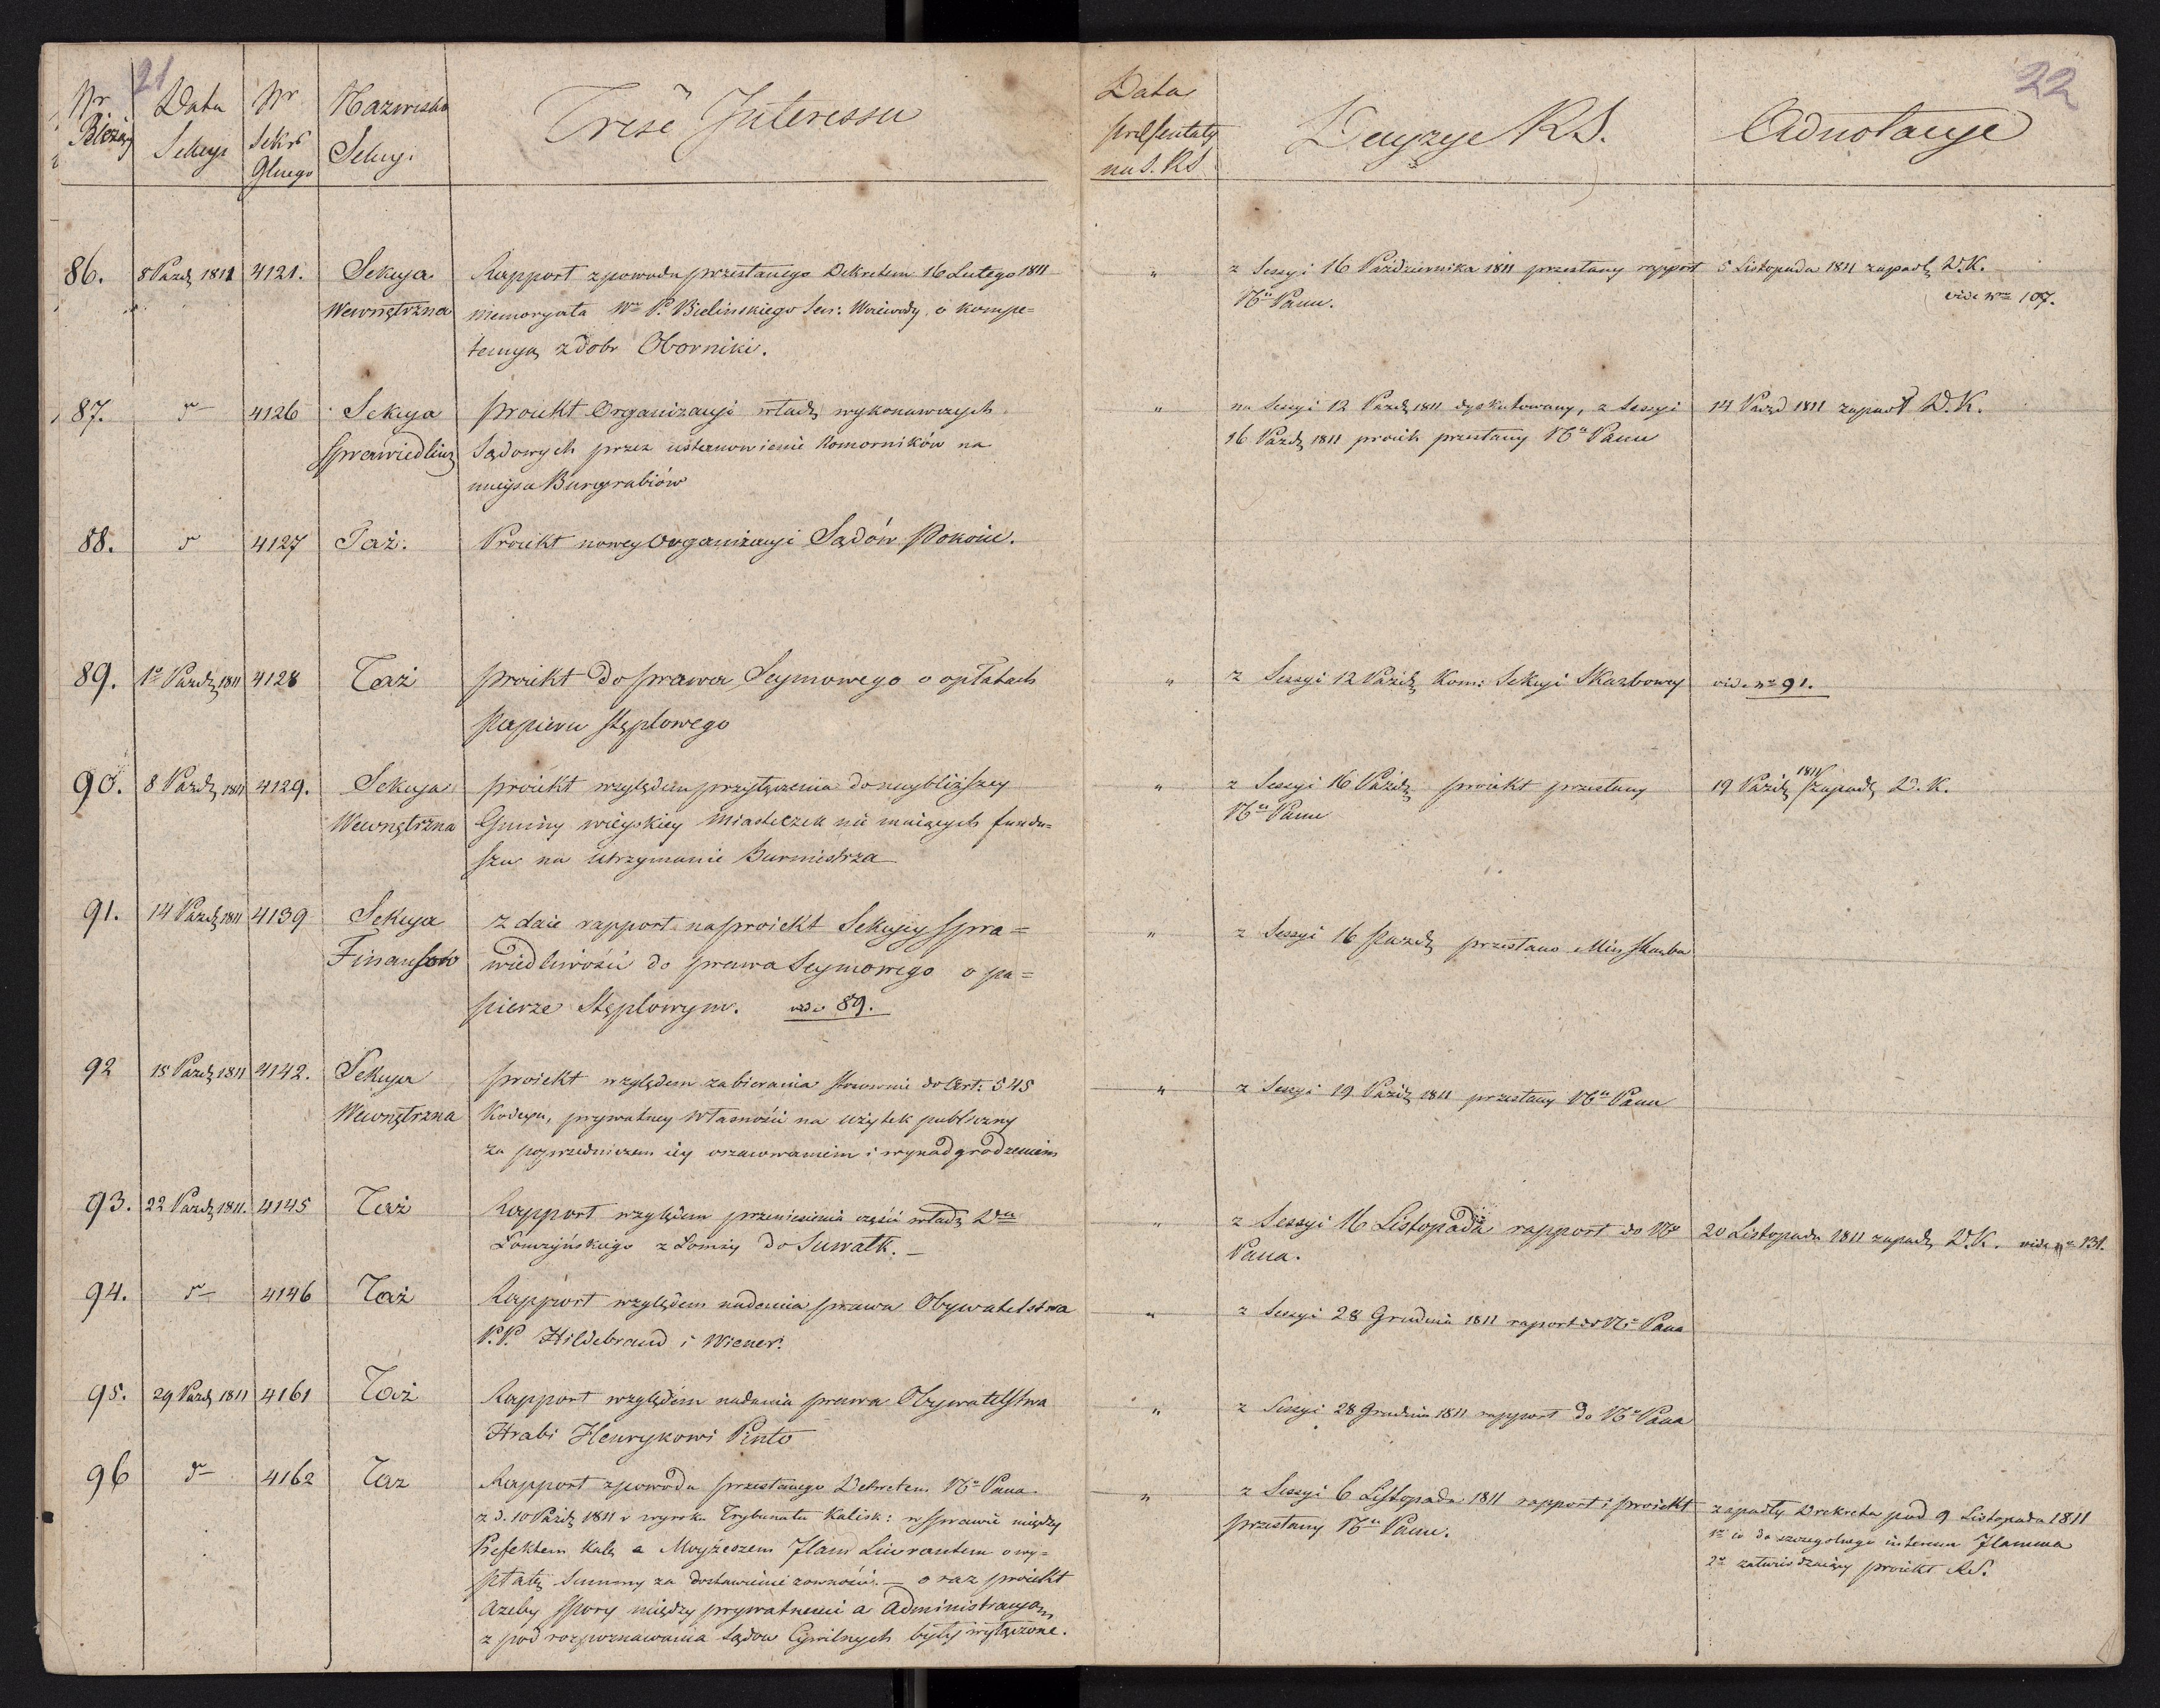 21
22
Nr Bieżący
Data Sekcyi
Nr Sekrt Głnego
Nazwisko Sekcyi
Treść Interessu
Data presentaty na S. RS
Decyzye RS.
Adnotacye
86. 8 Pazdz 1811 4121. Sekcya Wewnętrzna
Rapport z powodu przesłanego Dekretem 16 Lutego 1811
memoryału Wo P. Bielinskiego Sen: Woiewody, o kompe=
tencyą z dobr Oborniki.
" z Sessyi 16 Października 1811 przesłany rapport
Nu Panu.
5 Listopada 1811 zapadł D.K.
vide nro 107.
87. d– 4126 Sekcya Sprawiedliwz
proiekt Organizacyi władz wykonawczych
Sądowych przez ustanowienie Komorników na
mieysca Burgrabiów
" na Sessyi 12 Pazdz 1811 dyskutowany, z Sessyi
16 Pazdz 1811 proiekt przesłany Nu Panu
14 Pazd 1811 zapadł D.K.
88. d 4127 Taż.
Proiekt nowey Organizacyi Sądów Pokoiu.
89. 1o Pazdz 1811 4128 Taż
proiekt do prawa Seymowego o opłatach
papieru stęplowego
" z Sessyi 12 Paźdz Kom: Sekcyi Skarbowey
vide nro 91.
90. 8 Pazdz 1811 4129. Sekcya Wewnętrzna
proiekt względem przyłączenia do naybliższey
Gminy wieyskiey Miasteczek nie maiących fundu=
szu na utrzymanie Burmistrza
" z Sessyi 16 Paźdz proiekt przesłany
Nu Panu
19 Paźdz 1811 zapadł D.K.
91. 14 Pazdz 1811 4139 Sekcya Finansow
zdaie rapport na proiekt Sekcyi Spra=
wiedliwości do prawa Seymowego o pa=
pierze Stęplowym. vide 89.
" z Sessyi 16 Pazdz przesłano Min Skarbu
92 15 Pazdz 1811 4142. Sekcya Wewnętrzna
proiekt względem zabierania stosownie do Art: 545
Kodexu, prywatney własności na użytek publiczny
za poprzedniczem iey oszacowaniem i wynadgrodzeniem
" z Sessyi 19 Paźdz 1811 przesłany Nu Panu
93. 22 Pazdz 1811. 4145 Taż
Rapport względem przeniesienia części władz Dtu
Łomżyńskiego z Łomży do Suwałk. –
" z Sessyi 16 Listopada rapport do No
Pana.
20 Listopada 1811 zapadł D.K. vide nro 131.
94. d– 4146 Taż
Rapport względem nadania prawa Obywatelstwa
P.P. Hildebrand i Wiener.
" z Sessyi 28 Grudnia 1811 raport do No Pana
95. 29 Pazdz 1811 4161 Taż
Rapport względem nadania prawa Obywatelstwa
Hrabi Henrykowi Pinto
" z Sessyi 28 Grudnia 1811 rapport do No Pana
96 d– 4162 Taz
Rapport z powodu przesłanego Dekretem No Pana
z d. 10 Paźdz 1811 r wyroku Trybunału Kalisk: w sprawie między
Prefektem Kalis a Moyżeszem Flam Liwerantem o wy=
płatę Summy za dostawienie żywności. – oraz proiekt
Azeby spory między prywatnemi a Administracyą
z pod rozpoznawania Sądow Cywilnych były wyłączone.
" z Sessyi 6 Listopada 1811 rapport i proiekt
przesłany Nu Panu.
zapadły Dekreta pod 9 Listopada 1811
1o co do szczegolnego interesu Flamma
2o zatwierdzaiący proiekt RS.